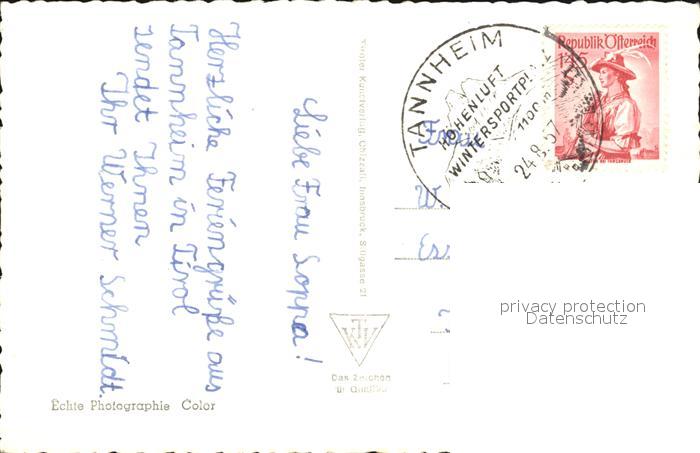 Liebe Frau Soppa!
Herzliche Feriengrüße aus
Tannheim in Tirol
sendet Ihnen
Ihr Werner Schmidt.
Echte Photographie Color
Tiroler Kunstverlag, Chizzali, Innsbruck, Stiftgasse 21
TKV
Das Zeichen
für Qualität
TANNHEIM
HÖHENLUFT
WINTERSPORTPL
1100 m
24.8.57
Republik Österreich
Frau
W.
privacy protection
Datenschutz